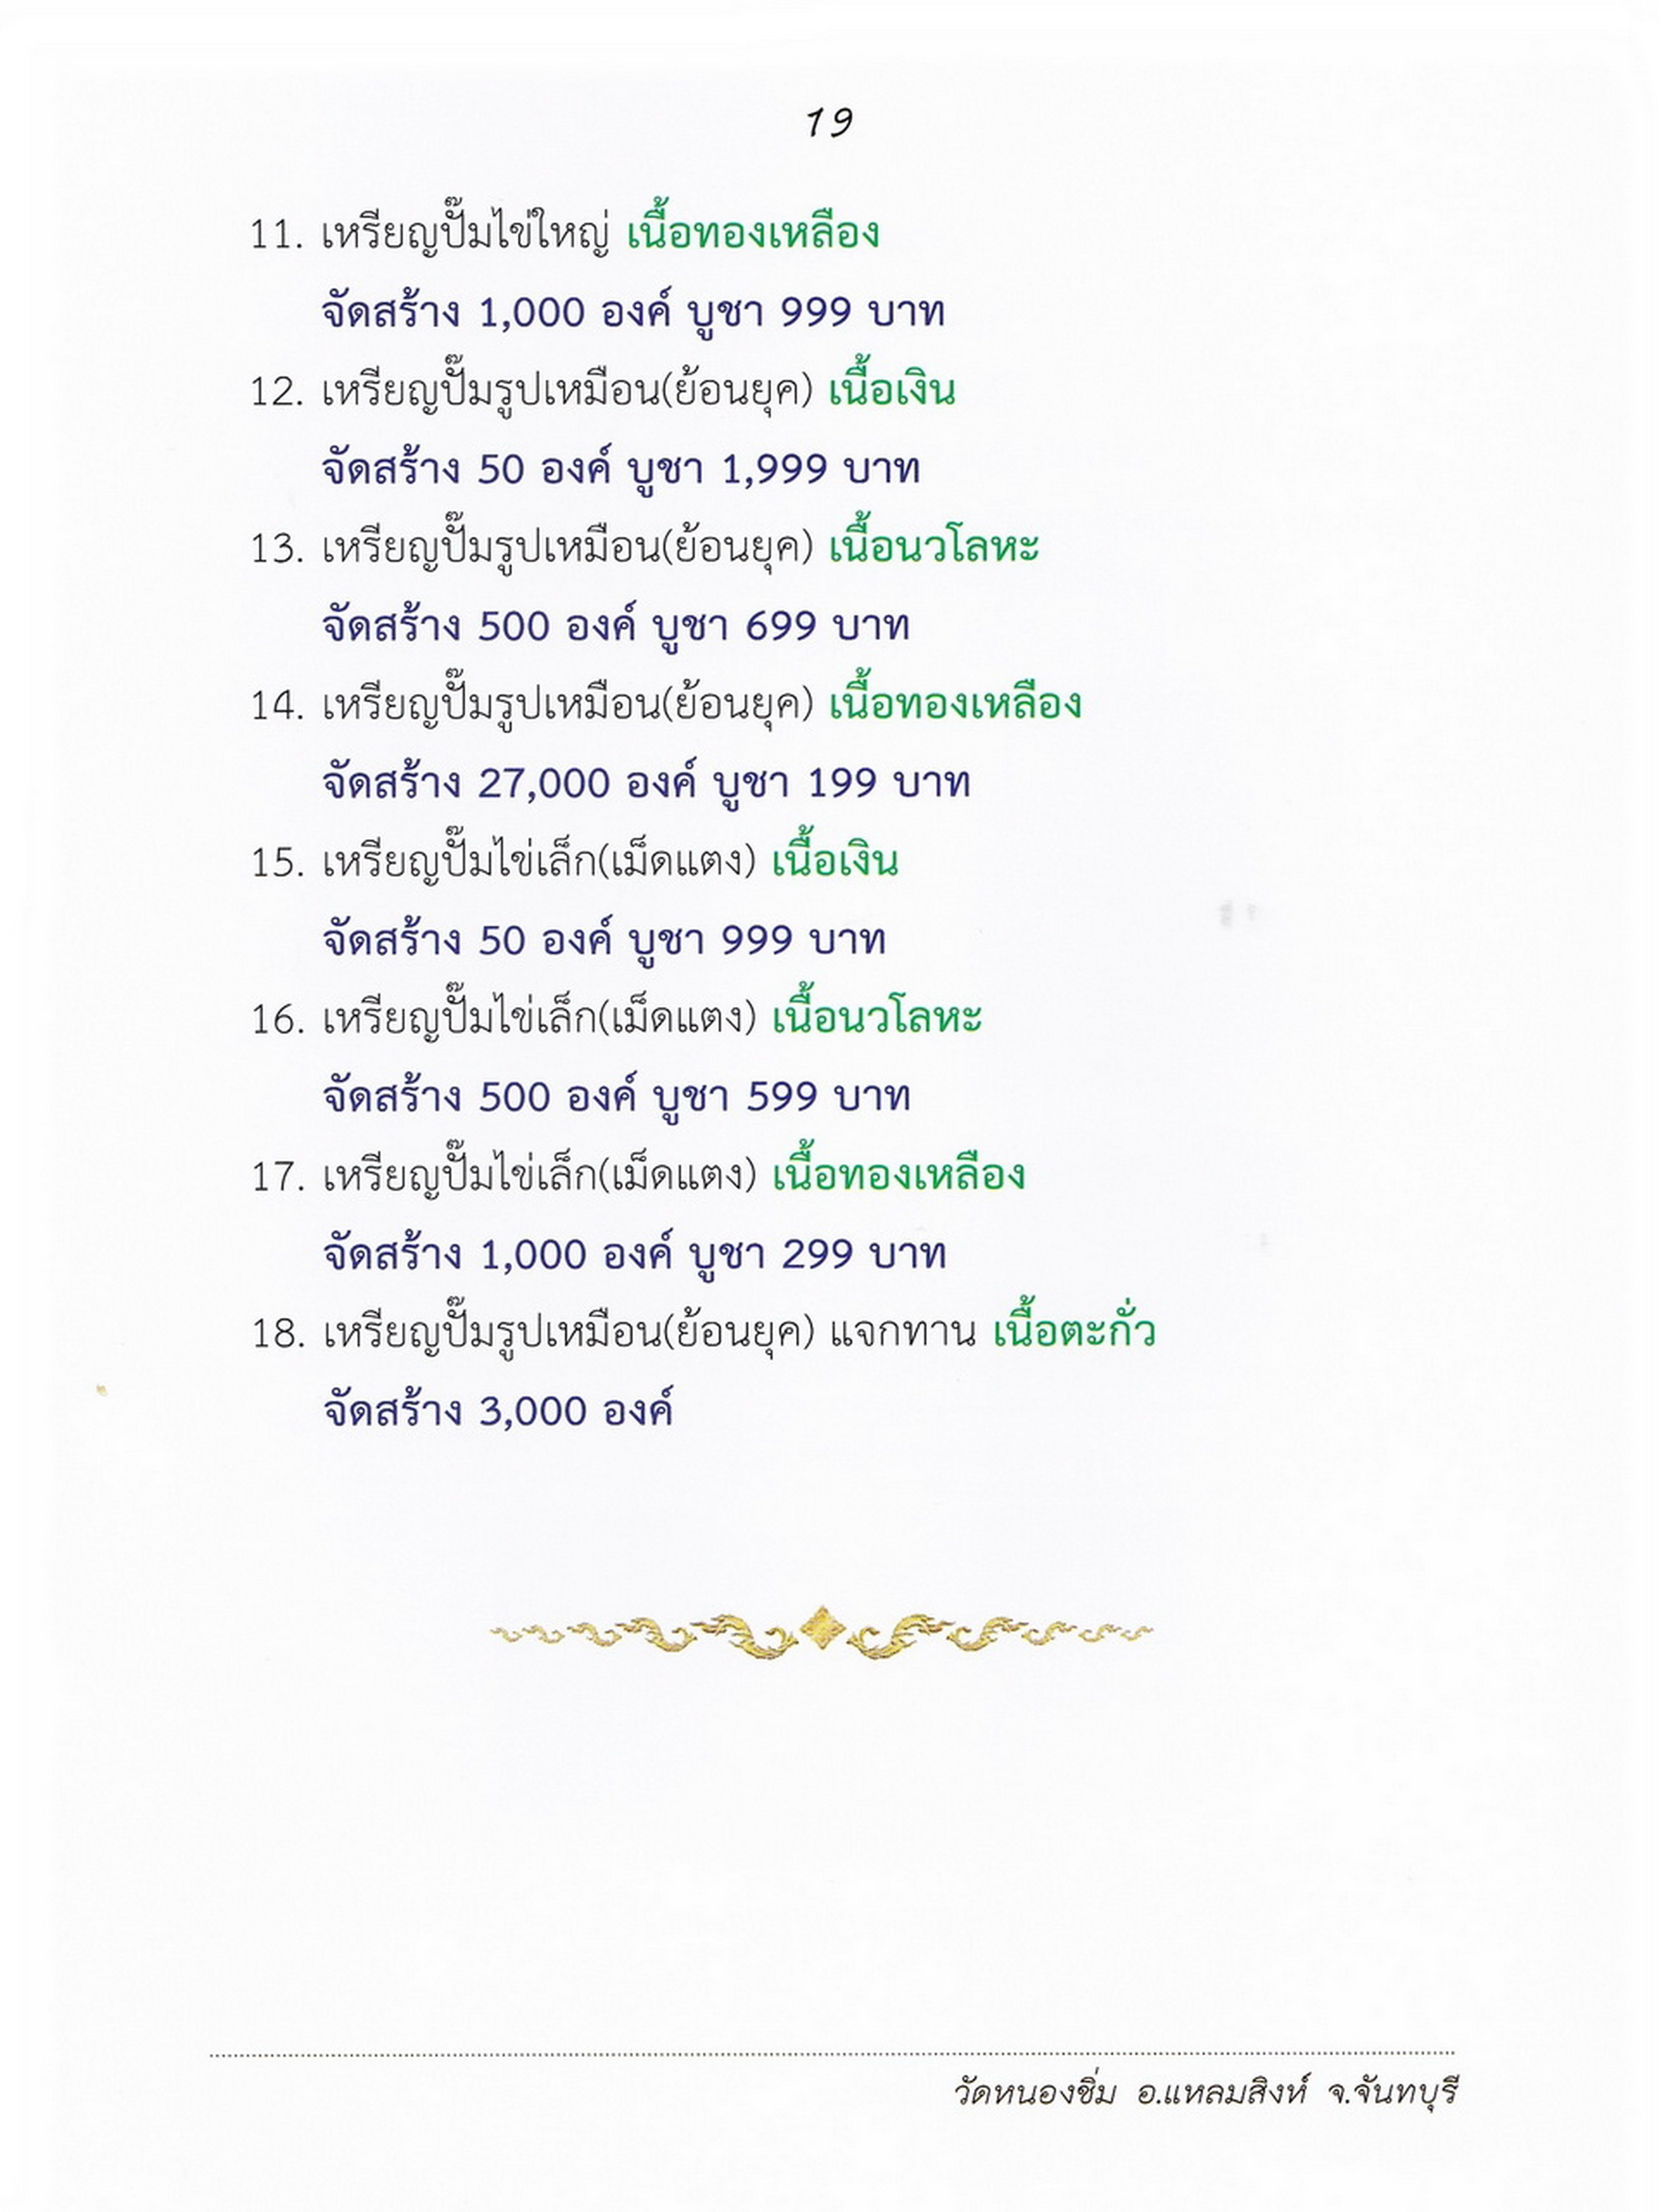 19
11. เหรียญปั๊มไข่ใหญ่ เนื้อทองเหลือง
จัดสร้าง 1,000 องค์ บูชา 999 บาท
12. เหรียญปั๊มรูปเหมือน(ย้อนยุค) เนื้อเงิน
จัดสร้าง 50 องค์ บูชา 1,999 บาท
13. เหรียญปั๊มรูปเหมือน(ย้อนยุค) เนื้อนวโลหะ
จัดสร้าง 500 องค์ บูชา 699 บาท
14. เหรียญปั๊มรูปเหมือน(ย้อนยุค) เนื้อทองเหลือง
จัดสร้าง 27,000 องค์ บูชา 199 บาท
15. เหรียญปั๊มไข่เล็ก(เม็ดแตง) เนื้อเงิน
จัดสร้าง 50 องค์ บูชา 999 บาท
16. เหรียญปั๊มไข่เล็ก(เม็ดแตง) เนื้อนวโลหะ
จัดสร้าง 500 องค์ บูชา 599 บาท
17. เหรียญปั๊มไข่เล็ก(เม็ดแตง) เนื้อทองเหลือง
จัดสร้าง 1,000 องค์ บูชา 299 บาท
18. เหรียญปั๊มรูปเหมือน(ย้อนยุค) แจกทาน เนื้อตะกั่ว
จัดสร้าง 3,000 องค์
วัดหนองชิ่ม อ.แหลมสิงห์ จ.จันทบุรี